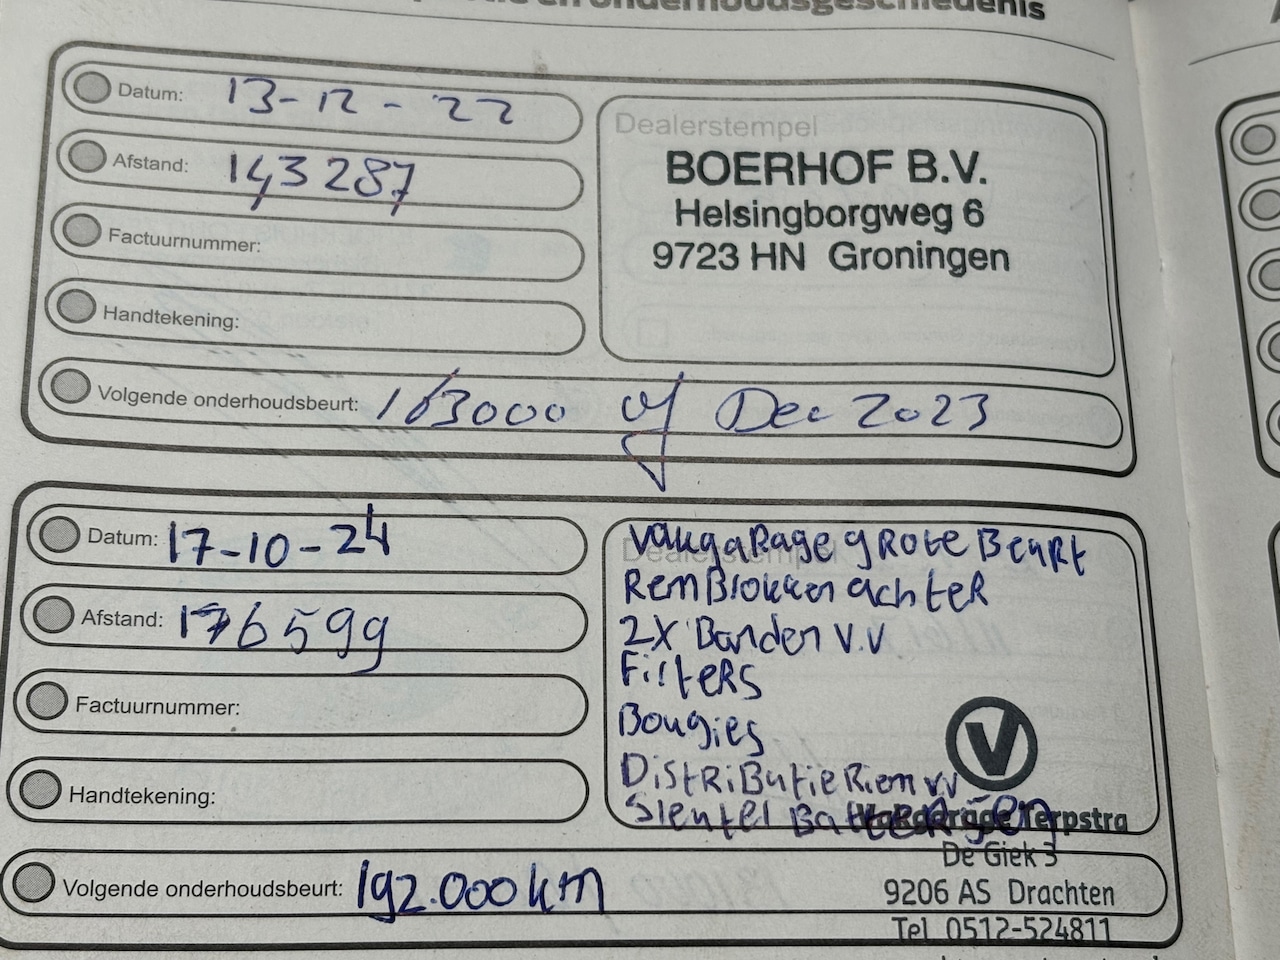 onderhoudsgeschiedenis
Datum: 13-12-22
Afstand: 143287
Factuurnummer:
Handtekening:
Volgende onderhoudsbeurt: 163000 of Dec 2023
Dealerstempel
BOERHOF B.V.
Helsingborgweg 6
9723 HN Groningen
Datum: 17-10-24
Afstand: 176599
Factuurnummer:
Handtekening:
Volgende onderhoudsbeurt: 192.000 km
Dealerstempel
vakgarage grote Beurt
RemBlokken achter
2X Banden V.V
Filters
Bougies
Distributie Riem vv
Sleutel Batterijen
Vakgarage Terpstra
De Giek 3
9206 AS Drachten
Tel 0512-524811